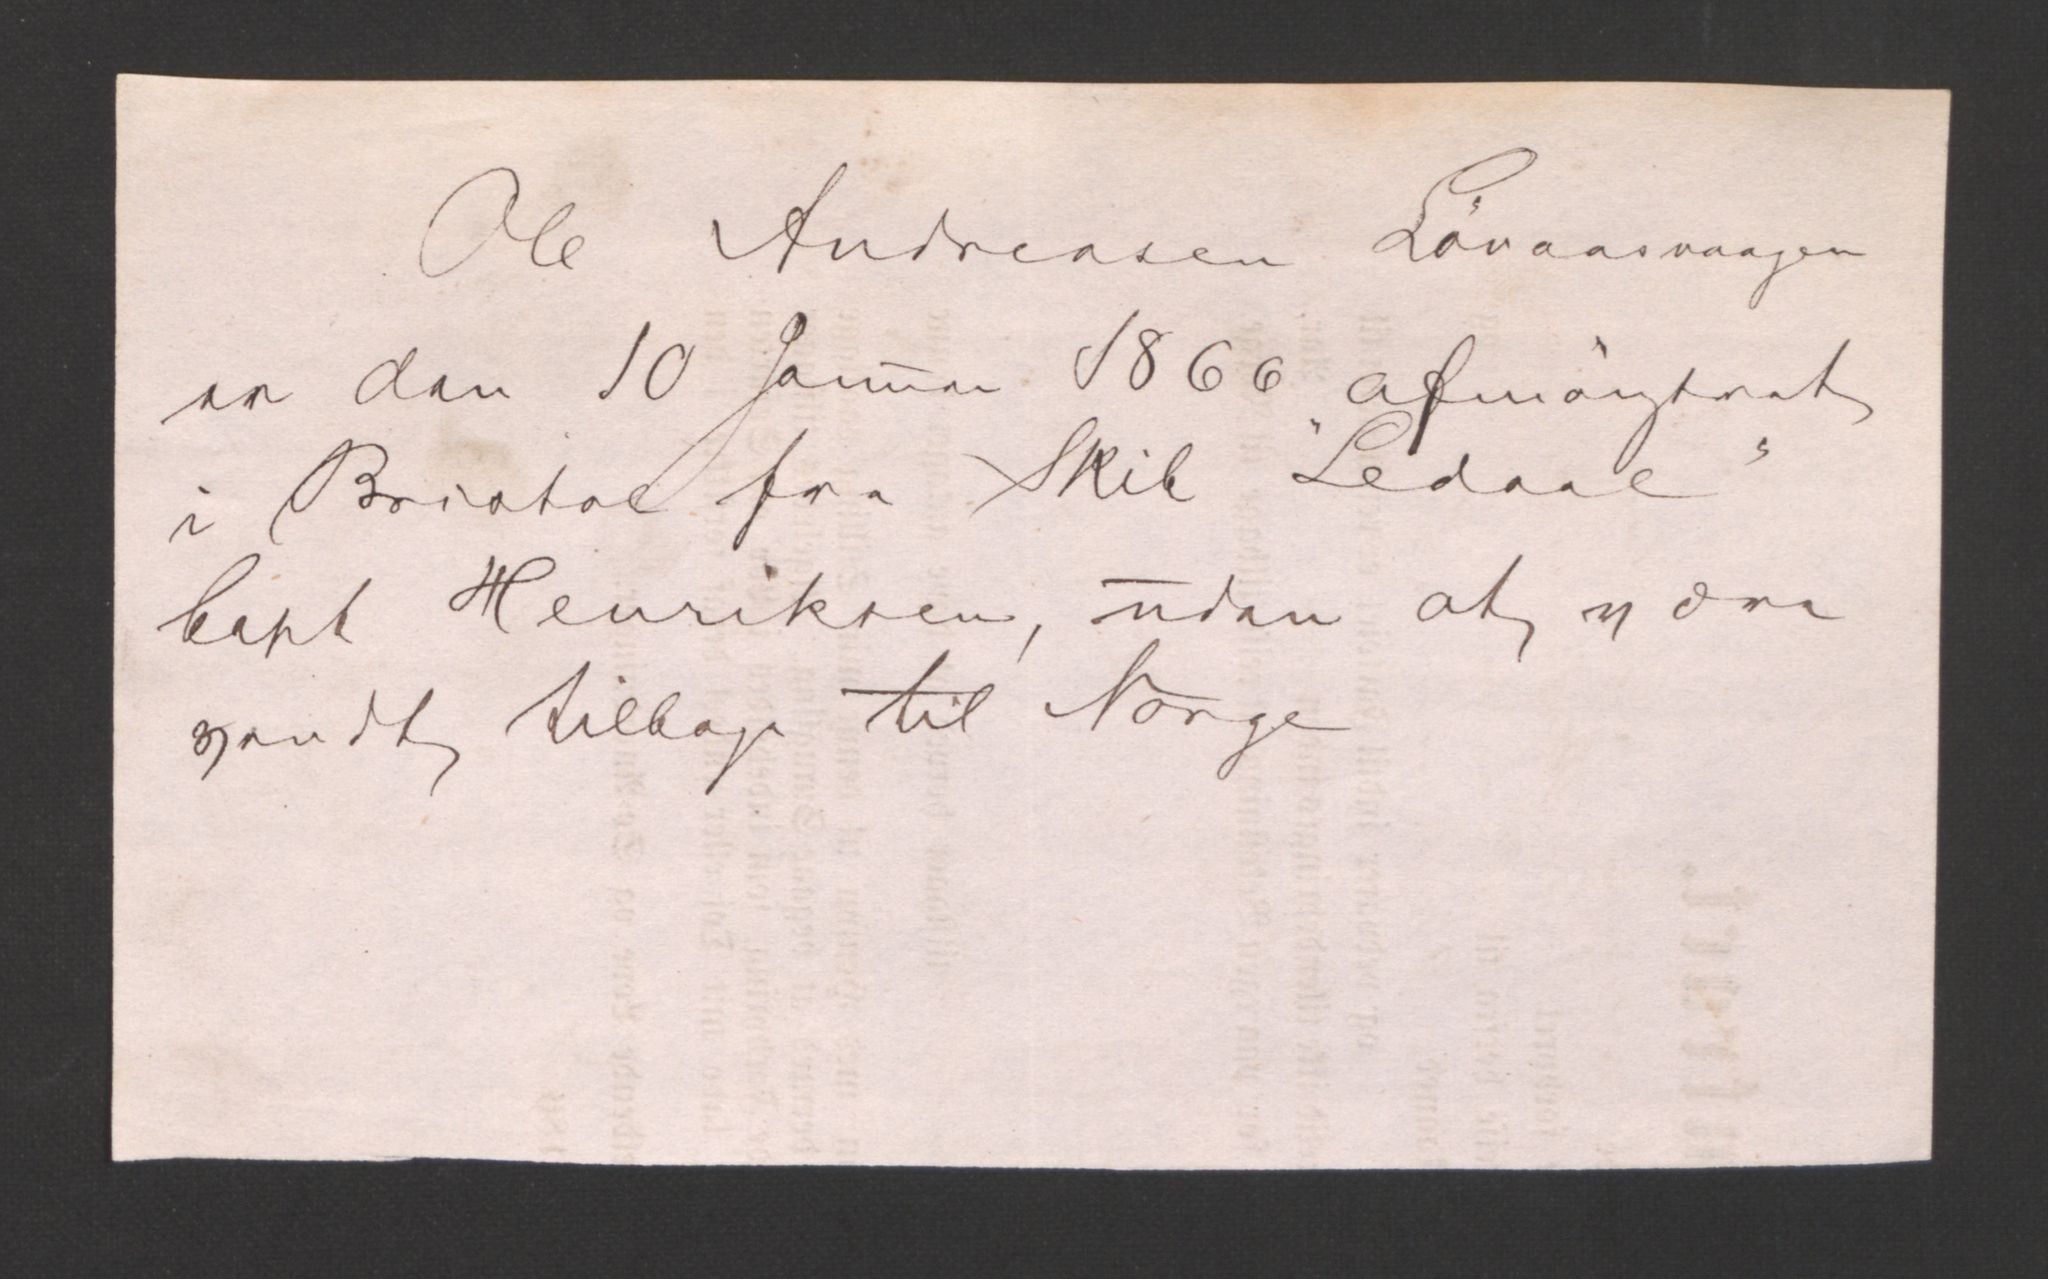 Ole Andreasen Lövaasvaagen
er den 10 Januar 1866 afmönstret
i Bristol fra Skib "Ledaal"
Capt Henriksen, uden at være
vendt tilbage til Norge